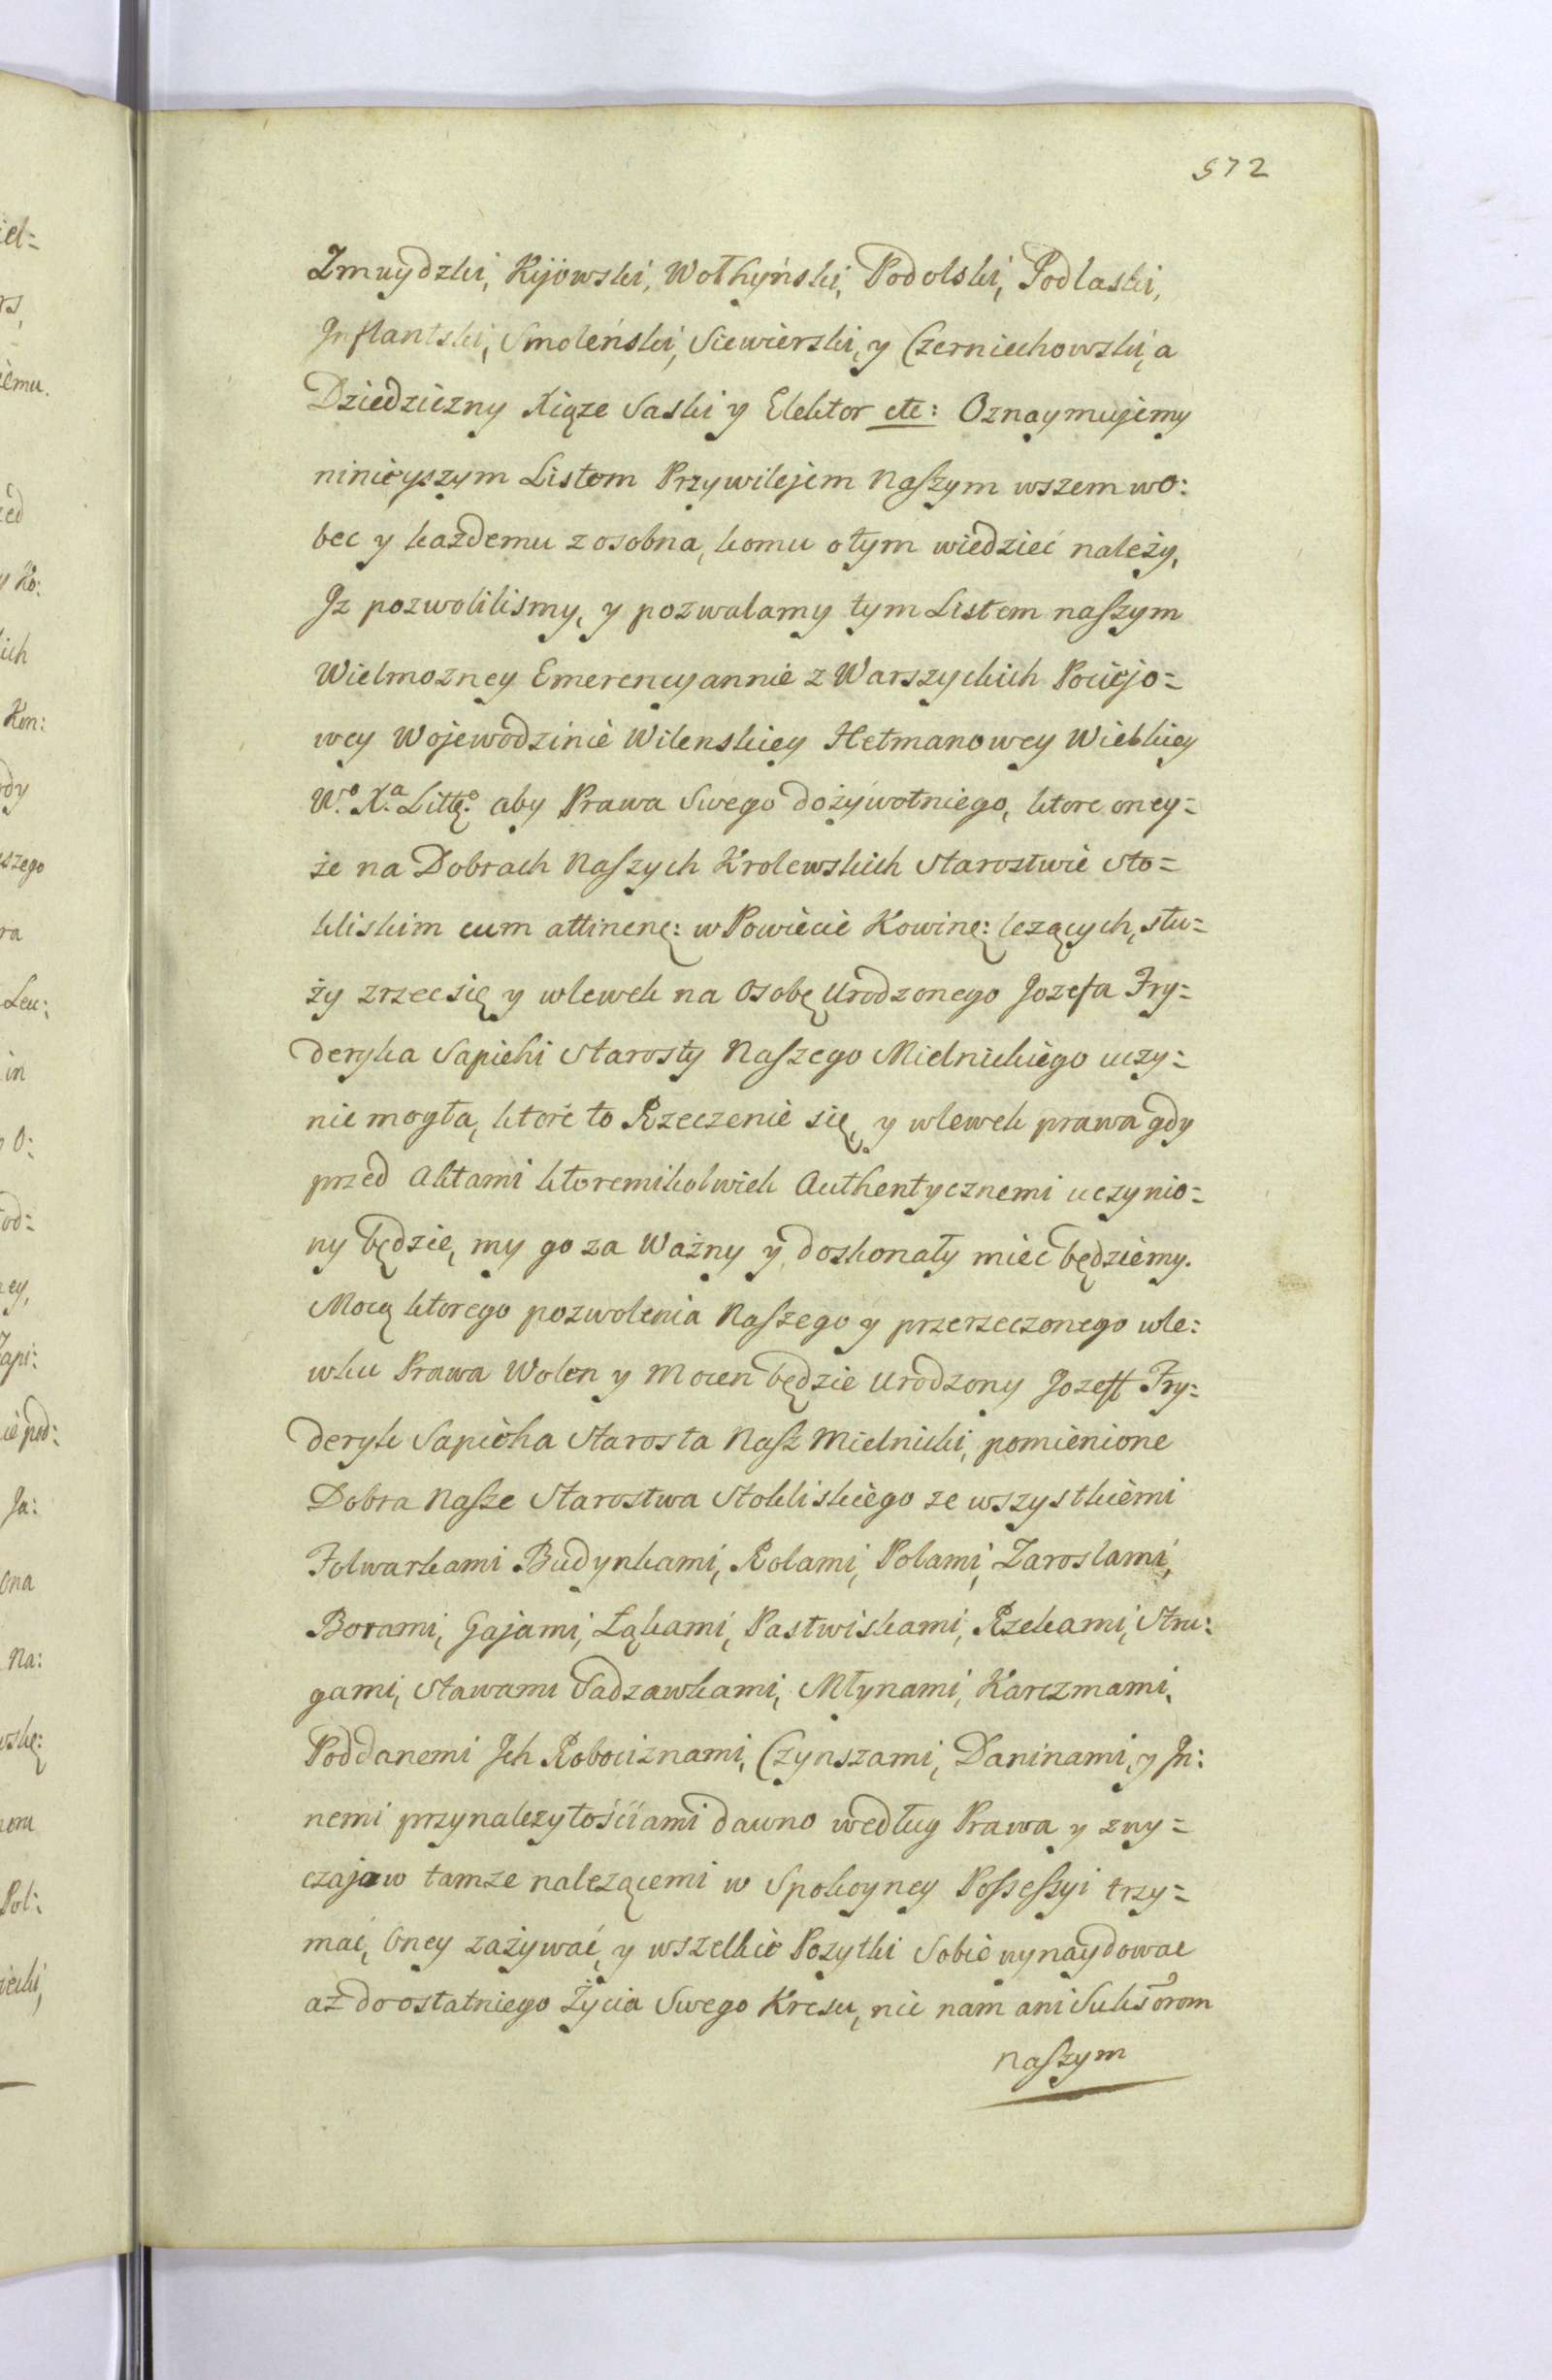 572
Zmuydzki, Kijowski, Wołhyński, Podolski, Podlaski,
Inflantski, Smoleński, Siewierski, y Czerniechowski, a
Dziedziczny Xiąze Saski y Elektor etc: Oznaymujemy
ninieyszym Listem Przywilejem Naszym wszem wo:
bec y każdemu z osobna, komu o tym wiedzieć należy,
Jz pozwolilismy, y pozwalamy tym Listem naszym
Wielmozney Emerencyannie z Warszyckich Pociejo=
wey Wojewodzinie Wilenskiey Hetmanowey Wielkiey
W.º X.ª Littº. aby Prawa Swego dożywotniego, ktore oney=
że na Dobrach Naszych Krolewskich Starostwie Sto=
kliskim cum attinenę: w Powiecie Kowinę: lezących, słu=
ży zrzec się y wlewek na Osobę Urodzonego Jozefa Fry=
deryka Sapiehi Starosty Naszego Mielnickiego uczy=
nic mogła, ktore to Rzeczenie się, y wlewek prawa gdy
przed Aktami ktoremikolwiek Authentycznemi uczynio=
ny będzie, my go za Ważny y doskonały miec będziemy.
Mocą ktorego pozwolenia Naszego y przerzeczonego wle:
wku Prawa Wolen y Mocen będzie Urodzony Jozeff Fry=
deryk Sapieha Starosta Nasz Mielnicki, pomienione
Dobra Nasze Starostwa Stokliskiego ze wszystkiemi
Folwarkami Budynkami, Rolami, Polami, Zaroslami,
Borami, Gajami, Łąkami, Pastwiskami, Rzekami, Stru:
gami, Stawami Sadzawkami, Młynami, Karczmami,
Poddanemi Ich Robociznami, Czynszami, Daninami, y In:
nemi przynalezytościami dawno według Prawa y zwy=
czajow tamze nalezącemi w Spokoyney Possessyi trzy=
mać, Oney zażywać, y wszelkie Pozytki Sobie wynaydowac
aż do ostatniego Życia Swego Kresu, nic nam ani Sukssorom
naszym